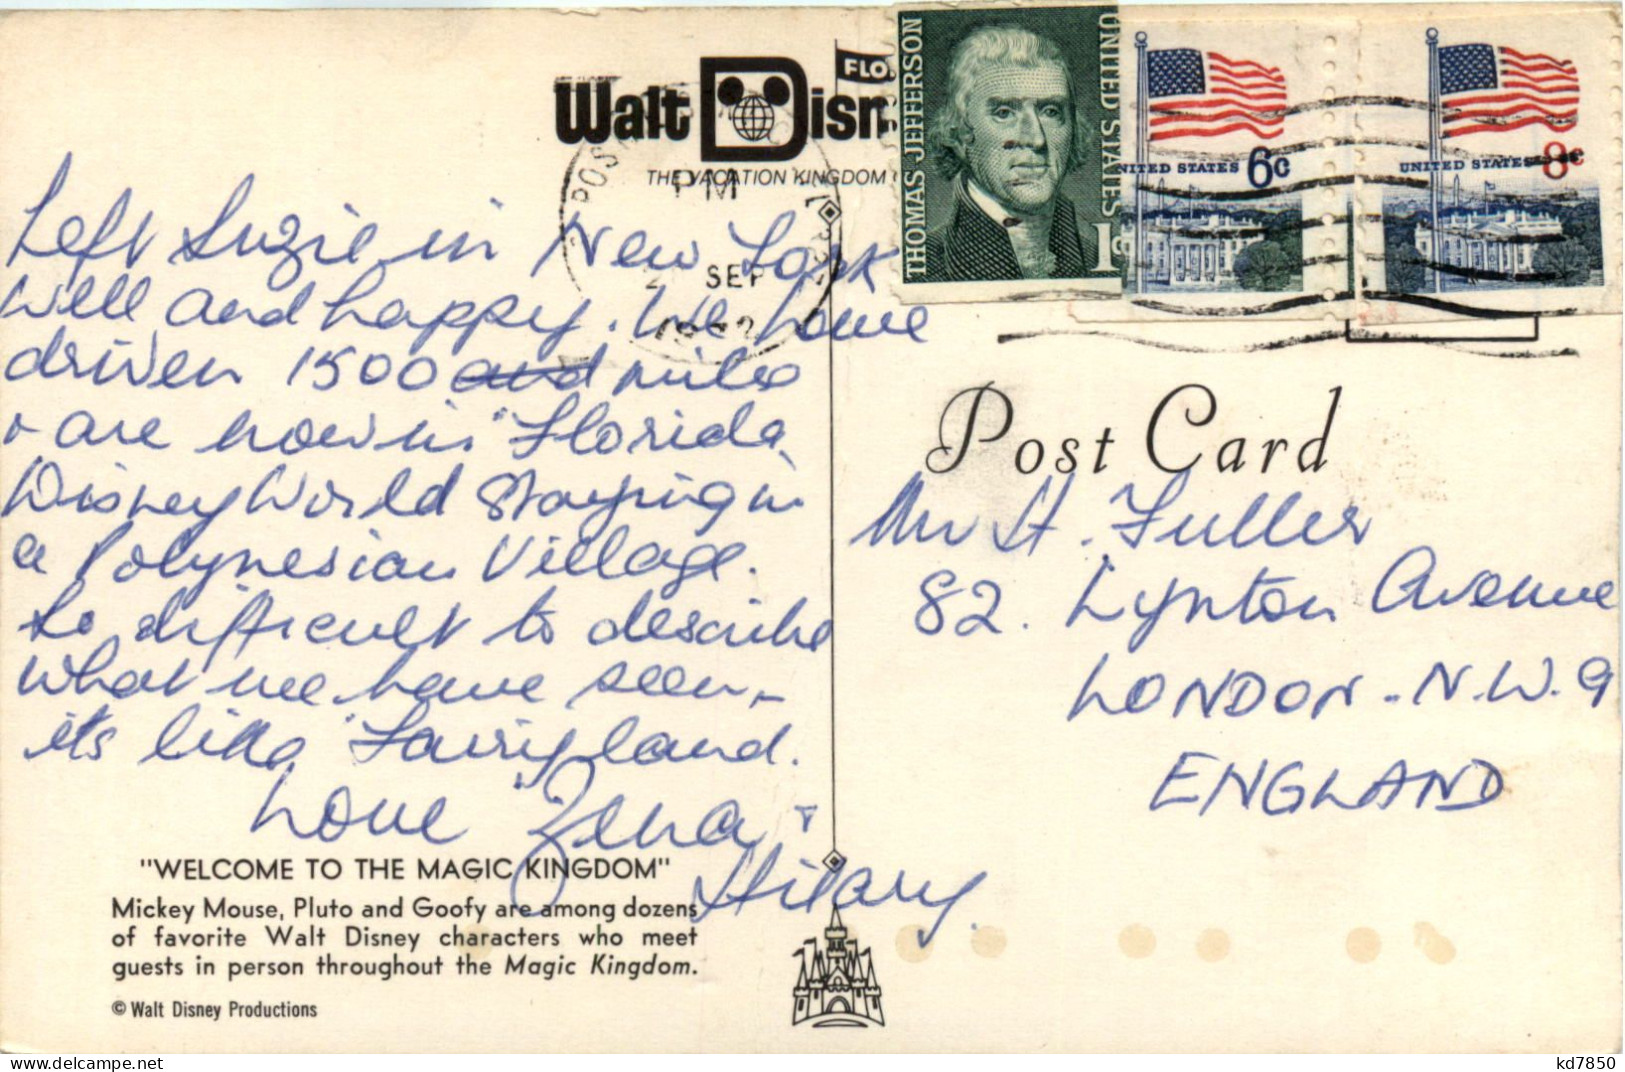 Walt Disn
FLO
THE VACATION KINGDOM
PM
SEP
THOMAS JEFFERSON
UNITED STATES
1¢
UNITED STATES 6c
UNITED STATES 8c
Left Suzie in New York
well and happy. We have
driven 1500 and miles
+ are now in Florida
Disney World staying in
a Polynesian Village.
So difficult to describe
what we have seen,
its like Fairyland.
Love Zena +
Hilary.
Post Card
Mr H. Fuller
82. Lynton Avenue
LONDON. N.W.9
ENGLAND
"WELCOME TO THE MAGIC KINGDOM"
Mickey Mouse, Pluto and Goofy are among dozens
of favorite Walt Disney characters who meet
guests in person throughout the Magic Kingdom.
© Walt Disney Productions
www.delcampe.net
kd7850